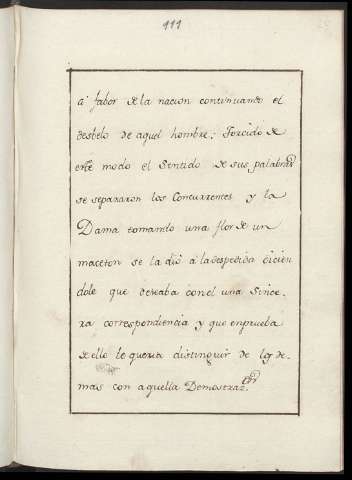 111
a' fabor de la nacion continuando el
desbelo de aquel hombre; Torcido de
este modo el Sentido de sus palabras
se separaron los Concurrentes y la
Dama tomando una flor de un
maceton se la dio á la despedida dicien
dole que deseaba con el una Since-
ra correspondiencia y que en prueba
de ello le queria distinguir de los de-
mas con aquella Demostraz.on